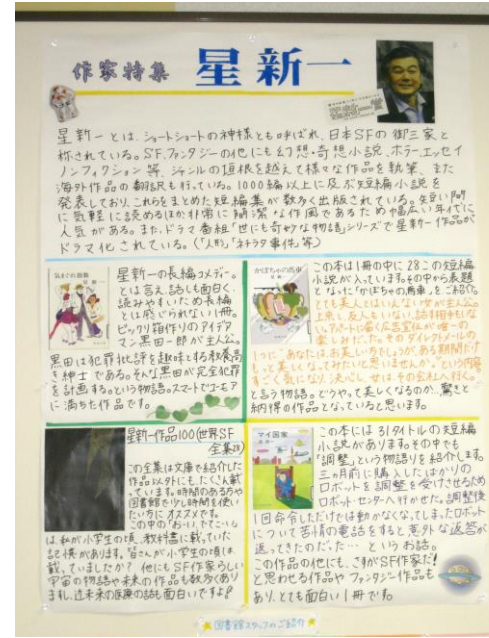 作家特集 星新一
星新一とは、ショートショートの神様とも呼ばれ、日本SFの御三家と
称されている。SF、ファンタジーの他にも幻想・奇想小説、ホラー、エッセイ
ノンフィクション等、ジャンルの垣根を越えて様々な作品を執筆、また
海外作品の翻訳も行っている。1000編以上に及ぶ短編小説を
発表しており、これらをまとめた短編集が数多く出版されている。短い間
に気軽に読めるほか非常に簡潔な作風であるため幅広い年代に
人気がある。また、ドラマ「世にも奇妙な物語」シリーズで星新一作品が
ドラマ化されている。(「人形」「ネチラタ事件」等)
気まぐれ指数
星新一の長編コメディー。
とは言え、話しも面白く、
読みやすいため長編
とは感じられない1冊。
ビックリ箱作りのアイデア
マン黒田一郎が主人公。
黒田は犯罪批評を趣味とする教養高
き紳士である。そんな黒田が完全犯罪
を計画する。という物語。スマートでユーモア
に満ちた作品です。
かぼちゃの馬車
この本は1冊の中に28この短編
小説が入っています。その中から表題
となった「かぼちゃの馬車」をご紹介。
とても美人とはいえない女性が主人公。
上京し友人もいない、話す相手もいな
いアパートに届く広告宣伝が唯一の
楽しみだった。そのダイレクトメールの
1つに「あなたは、お美しいでしょうが、ある期間だけ
もっと美しくなってみたいと思いませんか。」という内容
すごく気になり決心してついにその会社へ行く。
と言う物語。どうやって美しくなるのか、驚きと
納得の作品となっていると思います。
星新一作品100(世界SF
全集28)
この全集は文庫で紹介した
作品以外にも、たくさん載
っています。時間のある方や
図書館で少し時間を使い
たい方にオススメです。
この中の「おーい、でてこーい」
は私が小学生の頃、教科書に載っていた
記憶があります。皆さんが小学生の頃は
載っていましたか?他にもSF作家らしい
宇宙の物語や未来の作品も数多くあり
ますし、近未来の医療の話も面白いですよ♪
マイ国家
この本には31タイトルの短編
小説があります。その中でも
「調整」という物語りを紹介します。
三ヵ月前に購入したばかりの
ロボットを調整を受けさせるため
ロボット・センターへ行かせた。調整後
1回命令しただけでは動かなくなってしまったロボット
について苦情の電話をすると意外な返答が
返ってきたのだった…というお話。
この作品の他にも、さすがSF作家だ!
と思われる作品やファンタジー作品も
あり、とても面白い1冊です。
図書館スタッフのご紹介